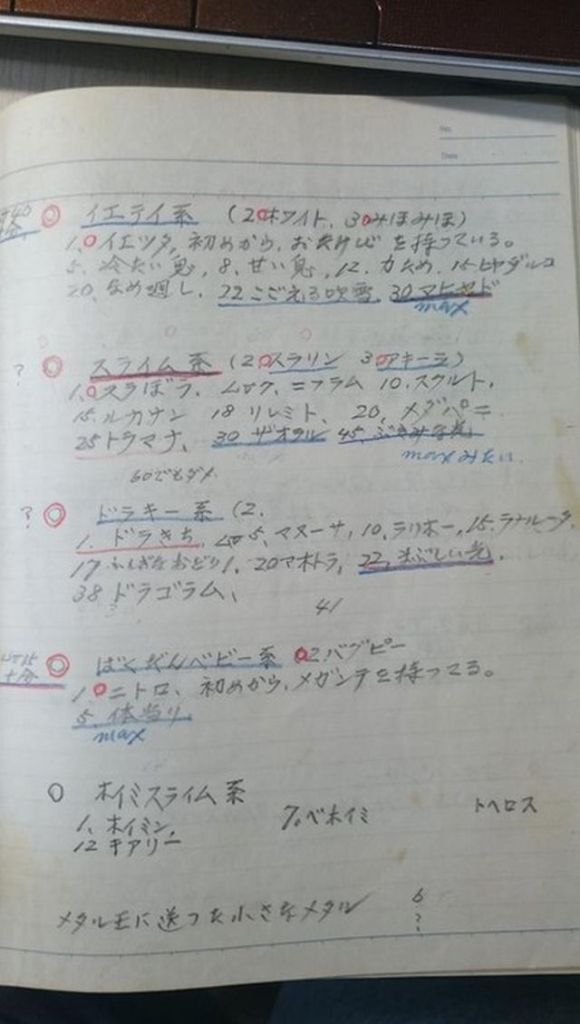 No.
Date
イエティ系 (2.ホワイト、3.みほみほ)
1.イエッタ, 初めから、おたけび を持っている。
5. 冷たい息, 8. 甘い息, 12. 力ため, 15. ヒャダルコ
20. なめ廻し、22 こごえる吹雪、30 マヒャド
max
? スライム系 (2.スラリン 3.アキーラ)
1.スラぼう、ニフラム 10. スクルト、
15. ルカナン 18 リレミト、20. メダパニ
25 トラマナ、30 ザオラル 45.
maxみたい
60でもダメ
? ドラキー系 (2.
1. ドラきち、5. マヌーサ, 10. ラリホー, 15. ラナルータ,
17 ふしぎなおどり1、20 マホトラ、22. まぶしい光,
38 ドラゴラム、
41
ばくだんベビー系 2.バグピー
1.ニトロ、初めから、メガンテを持ってる。
5. 体当り
max
ホイミスライム系
1. ホイミン, 7. ベホイミ トヘロス
12 キアリー
メタル王に送った小さなメタル 6
?